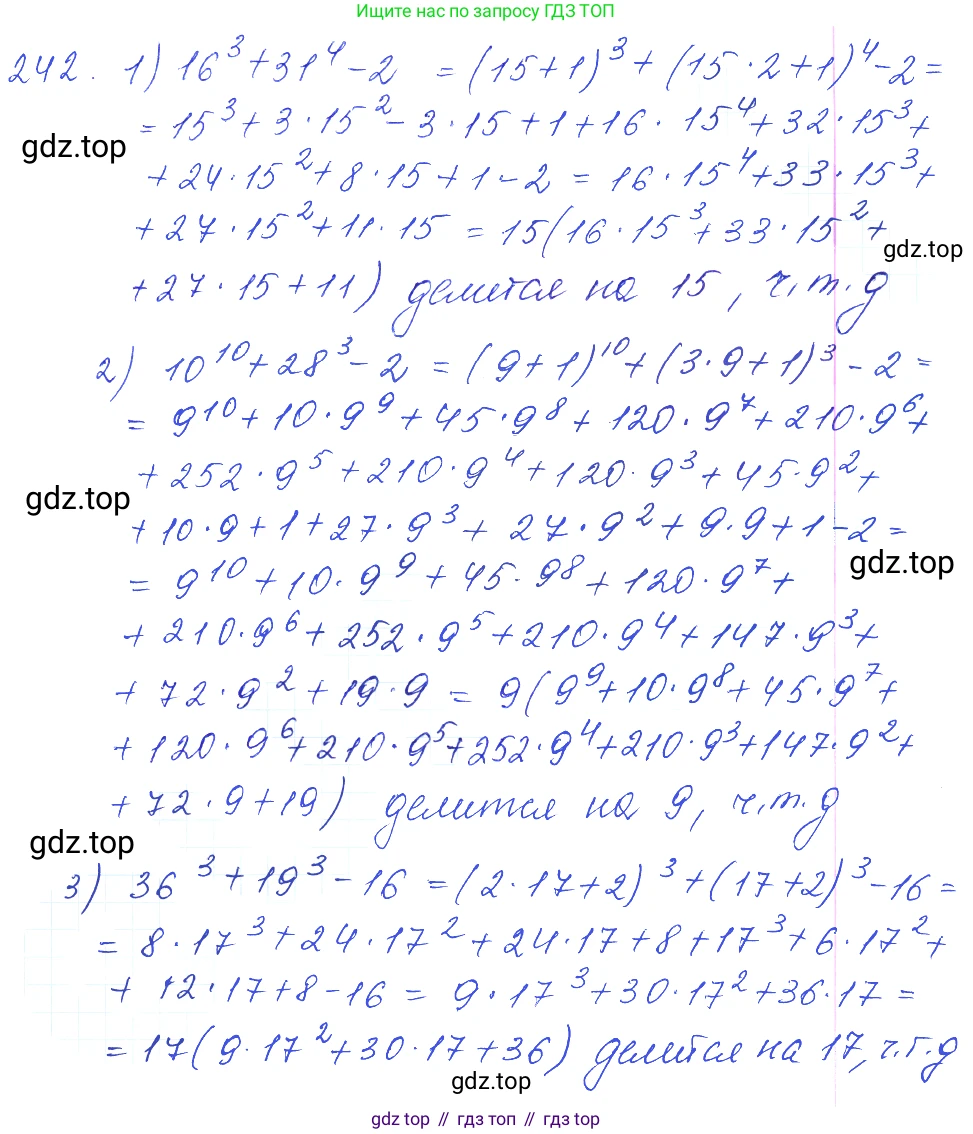 Ищите нас по запросу ГДЗ ТОП
242. 1) 16³+31⁴-2 = (15+1)³+(15·2+1)⁴-2=
=15³+3·15²-3·15+1+16·15⁴+32·15³+
gdz.top
+24·15²+8·15+1-2=16·15⁴+33·15³+
+27·15²+11·15=15(16·15³+33·15²+
gdz.top
+27·15+11) делится на 15, ч.т.д
2) 10¹⁰+28³-2=(9+1)¹⁰+(3·9+1)³-2=
=9¹⁰+10·9⁹+45·9⁸+120·9⁷+210·9⁶+
+252·9⁵+210·9⁴+120·9³+45·9²+
gdz.top
+10·9+1+27·9³+27·9²+9·9+1-2=
gdz.top
=9¹⁰+10·9⁹+45·9⁸+120·9⁷+
+210·9⁶+252·9⁵+210·9⁴+147·9³+
+72·9²+19·9=9(9⁹+10·9⁸+45·9⁷+
+120·9⁶+210·9⁵+252·9⁴+210·9³+147·9²+
+72·9+19) делится на 9, ч.т.д
gdz.top
3) 36³+19³-16=(2·17+2)³+(17+2)³-16=
=8·17³+24·17²+24·17+8+17³+6·17²+
+12·17+8-16=9·17³+30·17²+36·17=
=17(9·17²+30·17+36) делится на 17, ч.т.д
gdz.top
gdz top // гдз топ // gdz top